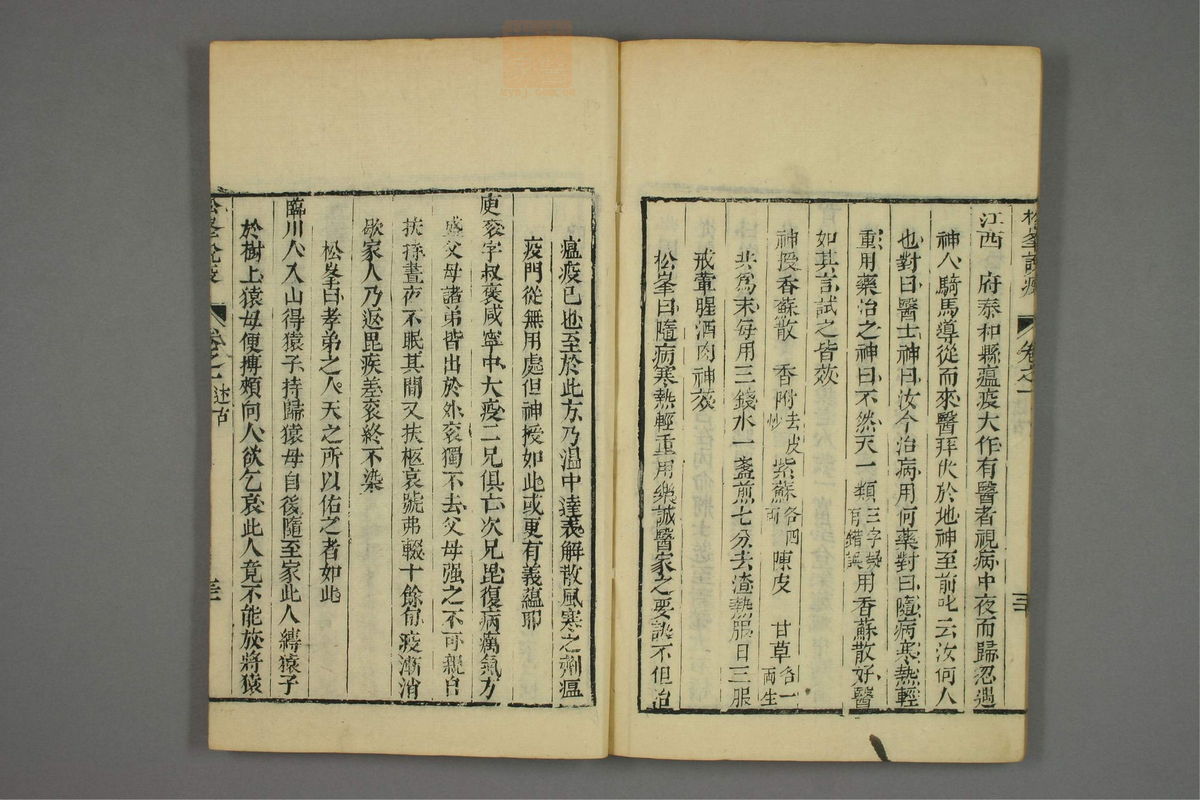 松峯說疫 卷之一 三十
江西　府泰和縣瘟疫大作有醫者視病中夜而歸忽遇
神人騎馬導從而來醫拜伏於地神至前叱云汝何人
也對曰醫士神曰汝今治病用何藥對曰隨病寒熱輕
重用藥治之神曰不然天一類三字疑有錯誤用香蘇散好醫
如其言試之皆效
神授香蘇散　香附去皮炒　紫蘇各四兩　陳皮　甘草各一兩生
共爲末每用三錢水一盞煎七分去渣熱服日三服
戒葷腥酒肉神效
松峯曰隨病寒熱輕重用藥誠醫家之要訣不但治
瘟疫已也至於此方乃温中達表解散風寒之劑瘟
疫門從無用處但神授如此或更有義蘊耶
庾袞字叔褒咸寧中大疫二兄俱亡次兄毘復病癘氣方
盛父母諸弟皆出於外袞獨不去父母强之不可親自
扶持晝夜不眠其間又扶柩哀號弗輟十餘旬疫漸消
歇家人乃返毘疾差袞終不染
松峯曰孝弟之人天之所以佑之者如此
臨川人入山得猿子持歸猿母自後隨至家此人縛猿子
於樹上猿母便搏頰向人欲乞哀此人竟不能放將猿
松峯說疫 卷之一 述古 三十一